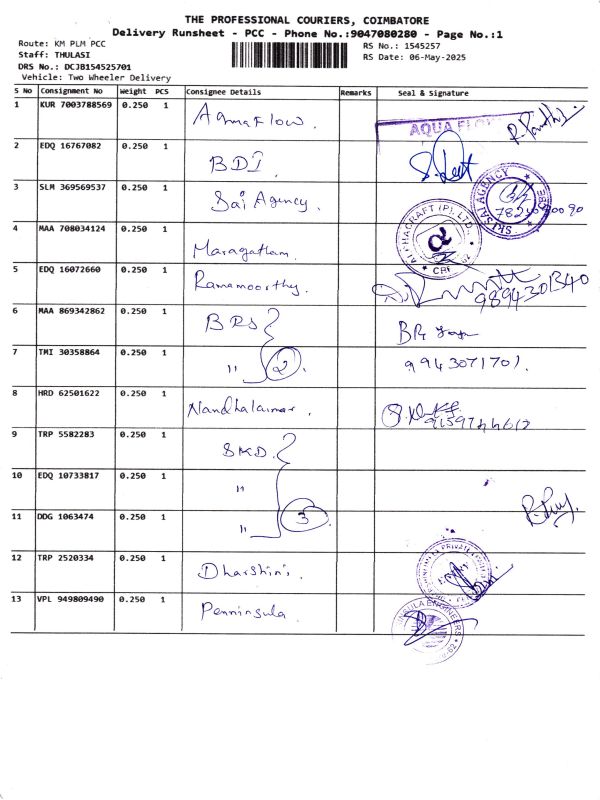 THE PROFESSIONAL COURIERS, COIMBATORE
Delivery Runsheet - PCC - Phone No.:9047080280 - Page No.:1
Route: KM PLM PCC
Staff: THULASI
DRS No.: DCJB154525701
Vehicle: Two Wheeler Delivery
RS No.: 1545257
RS Date: 06-May-2025
S No Consignment No Weight PCS Consignee Details Remarks Seal & Signature
1 KUR 7003788569 0.250 1 Aquaflow. AQUA FLOW
2 EDQ 16767082 0.250 1 BDI
3 SLM 369569537 0.250 1 Sai Agency. SRI SAI AGENCY
4 MAA 708034124 0.250 1 Maragatham. ALPHACRAFT (P) LTD.
5 EDQ 16072660 0.250 1 Ramamoorthy. 9894301340
6 MAA 869342862 0.250 1 BRS
7 TMI 30358864 0.250 1 " 2 9943071701.
8 HRD 62501622 0.250 1 Nandhakumar.
9 TRP 5582283 0.250 1 SKD.
10 EDQ 10733817 0.250 1 "
11 DDG 1063474 0.250 1 " 3
12 TRP 2520334 0.250 1 Dharshini. PRIVATE
13 VPL 949809490 0.250 1 Penninsula ENGINEERS